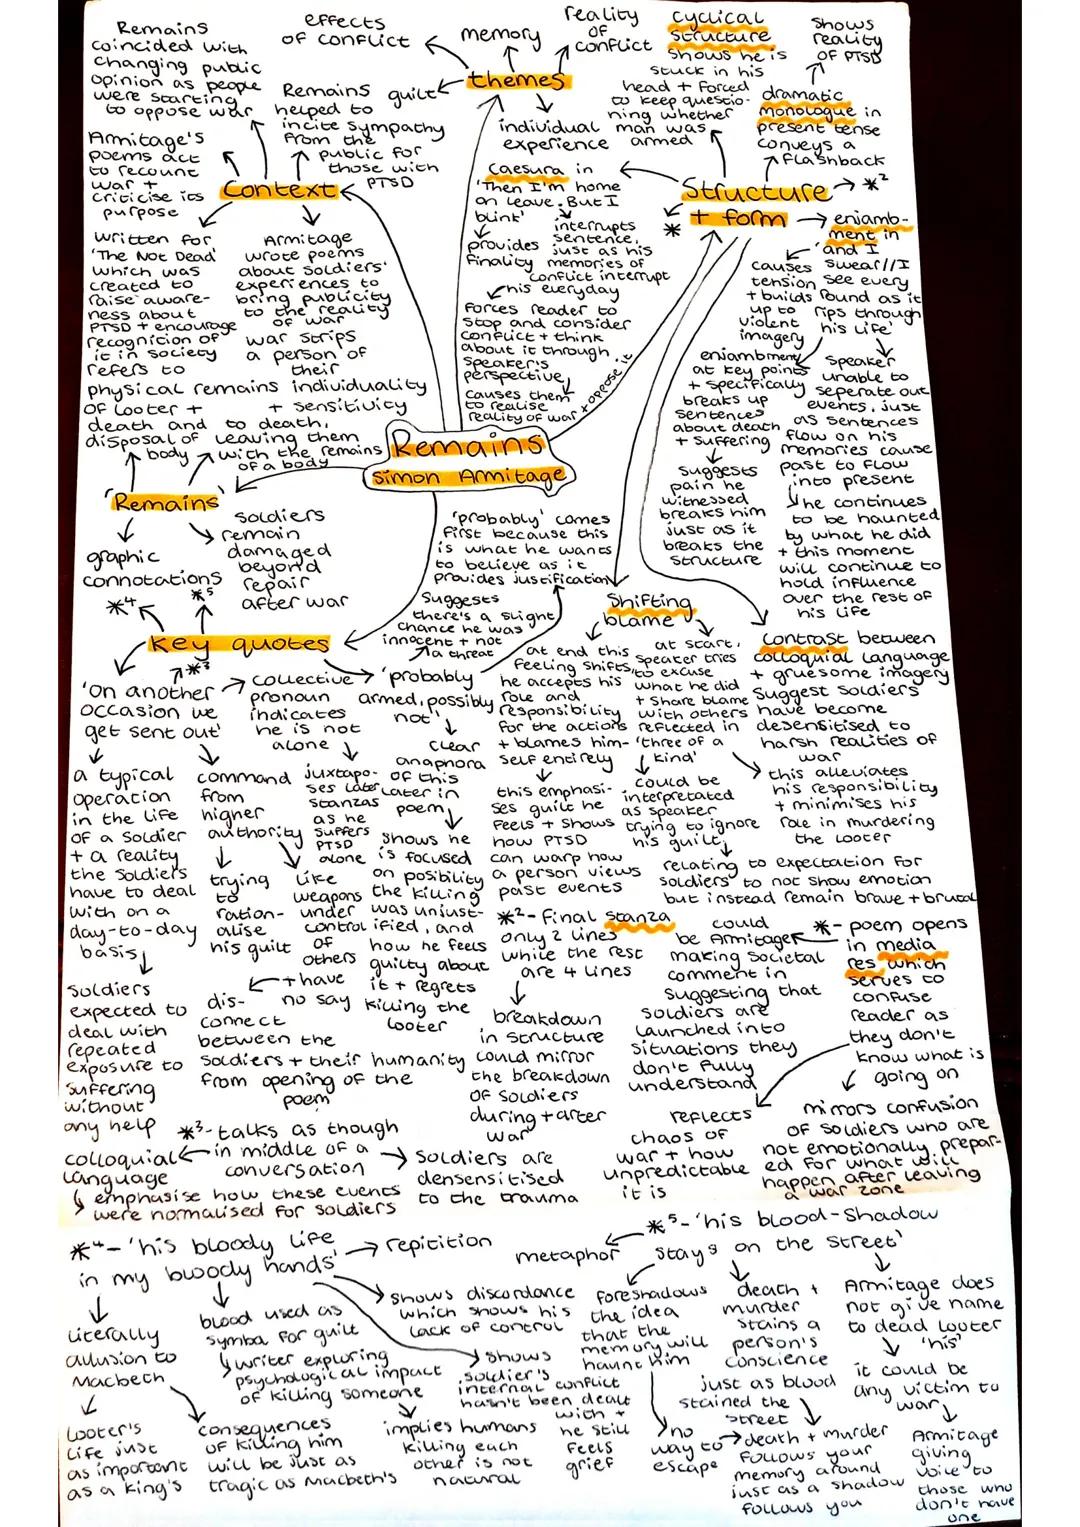 Remains
coincided with
changing public
opinion as people
were starting
to oppose war
effects
of conflict
memory
reality
of
conflict
themes
guilt
individual
experience
cyclical
structure
shows he is
stuck in his
head + forced
to keep questio-
ning whether
man was
armed
shows
reality
of PTSD
dramatic
monologue in
present tense
conveys a
flashback
Remains
helped to
incite sympathy
from the
public for
those with
PTSD
Armitage's
poems act
to recount
war +
criticise its
purpose
Context
written for
'The Not Dead'
which was
created to
raise aware-
ness about
PTSD + encourage
recognition of
it in society
Armitage
wrote poems
about soldiers'
experiences to
bring publicity
to the reality
of war
Caesura in
'Then I'm home
on leave. But I
blink'
provides
finality
interrupts
sentence,
just as his
memories of
conflict interrupt
his everyday
forces reader to
stop and consider
conflict + think
about it through
speaker's
perspective
causes them
to realise
reality of war + oppose it
Structure
+ form
*²
*
enjamb-
ment in
'and I
swear//I
see every
round as it
rips through
his life'
causes
tension
+ builds
up to
violent
imagery
enjambment
at key points
+ specifically
breaks up
sentences
about death
+ suffering
suggests
pain he
witnessed
breaks him
just as it
breaks the
structure
speaker
unable to
seperate out
events, just
as sentences
flow on his
memories cause
past to flow
into present
he continues
to be haunted
by what he did
+ this moment
will continue to
hold influence
over the rest of
his life
Remains
Simon Armitage
refers to
physical remains
of looter +
death and
disposal of
body
war strips
a person of
their
individuality
+ sensitivity
to death,
leaving them
with the remains
of a body
'Remains'
graphic
connotations
soldiers
remain
damaged
beyond
repair
after war
*⁴
*⁵
key quotes
*³
'probably' comes
first because this
is what he wants
to believe as it
provides justification
Suggests
there's a slight
chance he was
innocent + not
a threat
'probably
armed, possibly
not'
clear
anaphora
of this
later in
poem
shows he
is focused
on posibility
the killing
was unjust-
ified, and
how he feels
guilty about
it + regrets
killing the
looter
'On another
occasion we
get sent out'
collective
pronoun
indicates
he is not
alone
juxtapo-
ses later
stanzas
as he
suffers
PTSD
alone
a typical
operation
in the life
of a soldier
+ a reality
the soldiers
have to deal
with on a
day-to-day
basis
soldiers
expected to
deal with
repeated
exposure to
suffering
without
any help
command
from
higher
authority
trying
to
ration-
alise
his guilt
like
weapons
under
control
of
others
+ have
no say
dis-
connect
between the
soldiers + their humanity
from opening of the
poem
Shifting
blame
at end this
feeling shifts,
he accepts his
role and
responsibility
for the actions
+ blames him-
self entirely
this emphasi-
ses guilt he
feels + shows
how PTSD
can warp how
a person views
past events
at start,
speaker tries
to excuse
what he did
+ share blame
with others
reflected in
'three of a
kind'
could be
interpretated
as speaker
trying to ignore
his guilt,
relating to expectation for
soldiers to not show emotion
but instead remain brave + brutal
contrast between
colloquial language
+ gruesome imagery
suggest soldiers
have become
desensitised to
harsh realities of
war
this alleviates
his responsibility
+ minimises his
role in murdering
the looter
*²- final stanza
only 2 lines
while the rest
are 4 lines
breakdown
in structure
could mirror
the breakdown
of soldiers
during + after
war
*- poem opens
in media
res which
serves to
confuse
reader as
they don't
know what is
going on
could
be Armitage
making societal
comment in
suggesting that
soldiers are
launched into
situations they
don't fully
understand
reflects
chaos of
war + how
unpredictable
it is
mirrors confusion
of soldiers who are
not emotionally prepar-
ed for what will
happen after leaving
a war zone
*³- talks as though
in middle of a
conversation
colloquial
language
emphasise how these events
were normalised for soldiers
soldiers are
densensitised
to the trauma
*⁴- 'his bloody life
in my bloody hands'
repitition
literally
allusion to
Macbeth
looter's
life just
as important
as a king's
consequences
of killing him
will be just as
tragic as Macbeth's
blood used as
symbol for guilt
writer exploring
psychological impact
of killing someone
implies humans
killing each
other is not
natural
shows discordance
which shows his
lack of control
shows
soldier's
internal conflict
hasn't been dealt
with +
he still
feels
grief
*⁵- 'his blood-shadow
stays on the street'
metaphor
foreshadows
the idea
that the
memory will
haunt him
no
way to
escape
death +
murder
stains a
person's
conscience
just as blood
stained the
street
death + murder
follows your
memory around
just as a shadow
follows you
Armitage does
not give name
to dead looter
'his'
it could be
any victim to
war
Armitage
giving
voice to
those who
don't have
one